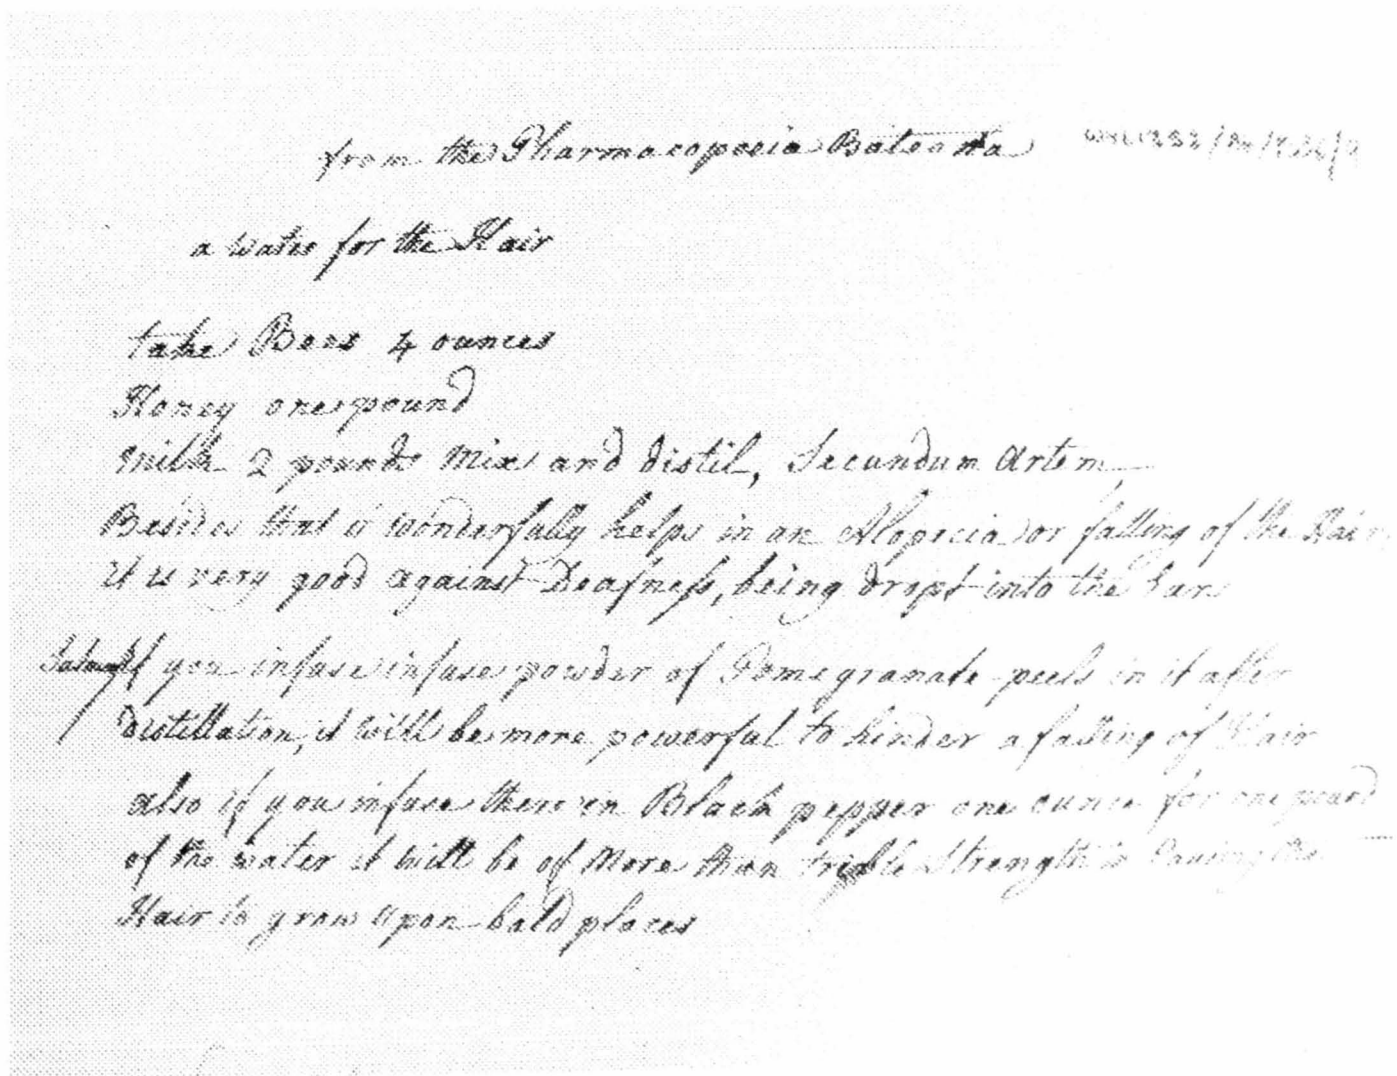 from the Pharmacopoeia Bateana
a water for the Hair
take Bees 4 ounces
Honey one pound
milk 2 pounds mix and distil, Secundum Artem,
Besides that it wonderfully helps in an Alopecia or falling of the Hair
it is very good against Deafness, being dropt into the Ear
If you infuse infuse powder of Pomegranate peels in it after
distillation, it will be more powerful to hinder a falling of Hair
also if you infuse there in Black pepper one ounce for one pound
of the water it will be of More than trible Strength in Causing the
Hair to grow upon bald places